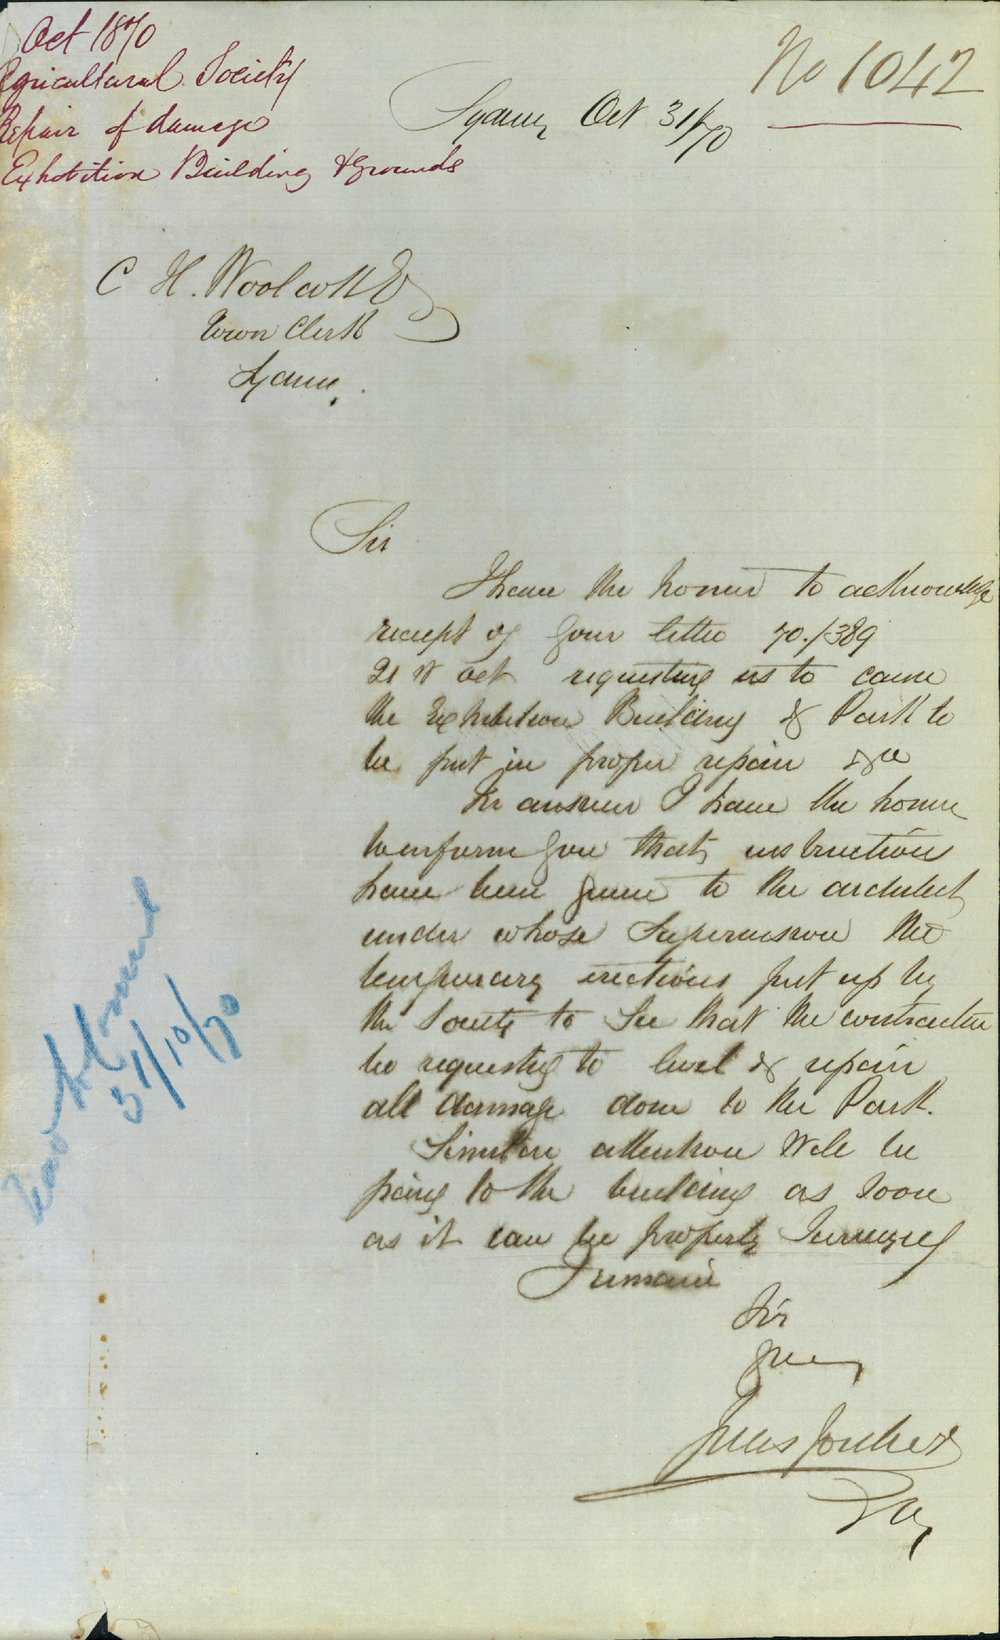 Oct 1870
Agricultural Society
Repair of damage
Exhibition Building & Grounds
No 1042
Sydney Oct 31/70
C H. Woolcott Esq
Town Clerk
Sydney.
Sir
I have the honor to acknowledge
receipt of your letter 70./389
21st Oct requesting us to cause
the Exhibition Building & Park to
be put in proper repair &c
In answer I have the honor
to inform you that instructions
have been given to the architect
under whose Supervision the
temporary erections put up by
the Society to See that the contractor
be requested to level & repair
all damage done to the Park.
Similar attention will be
paid to the building as soon
as it can be properly Surveyed
I remain
Sir
Yours
Jules Joubert
Secy
31/10/70